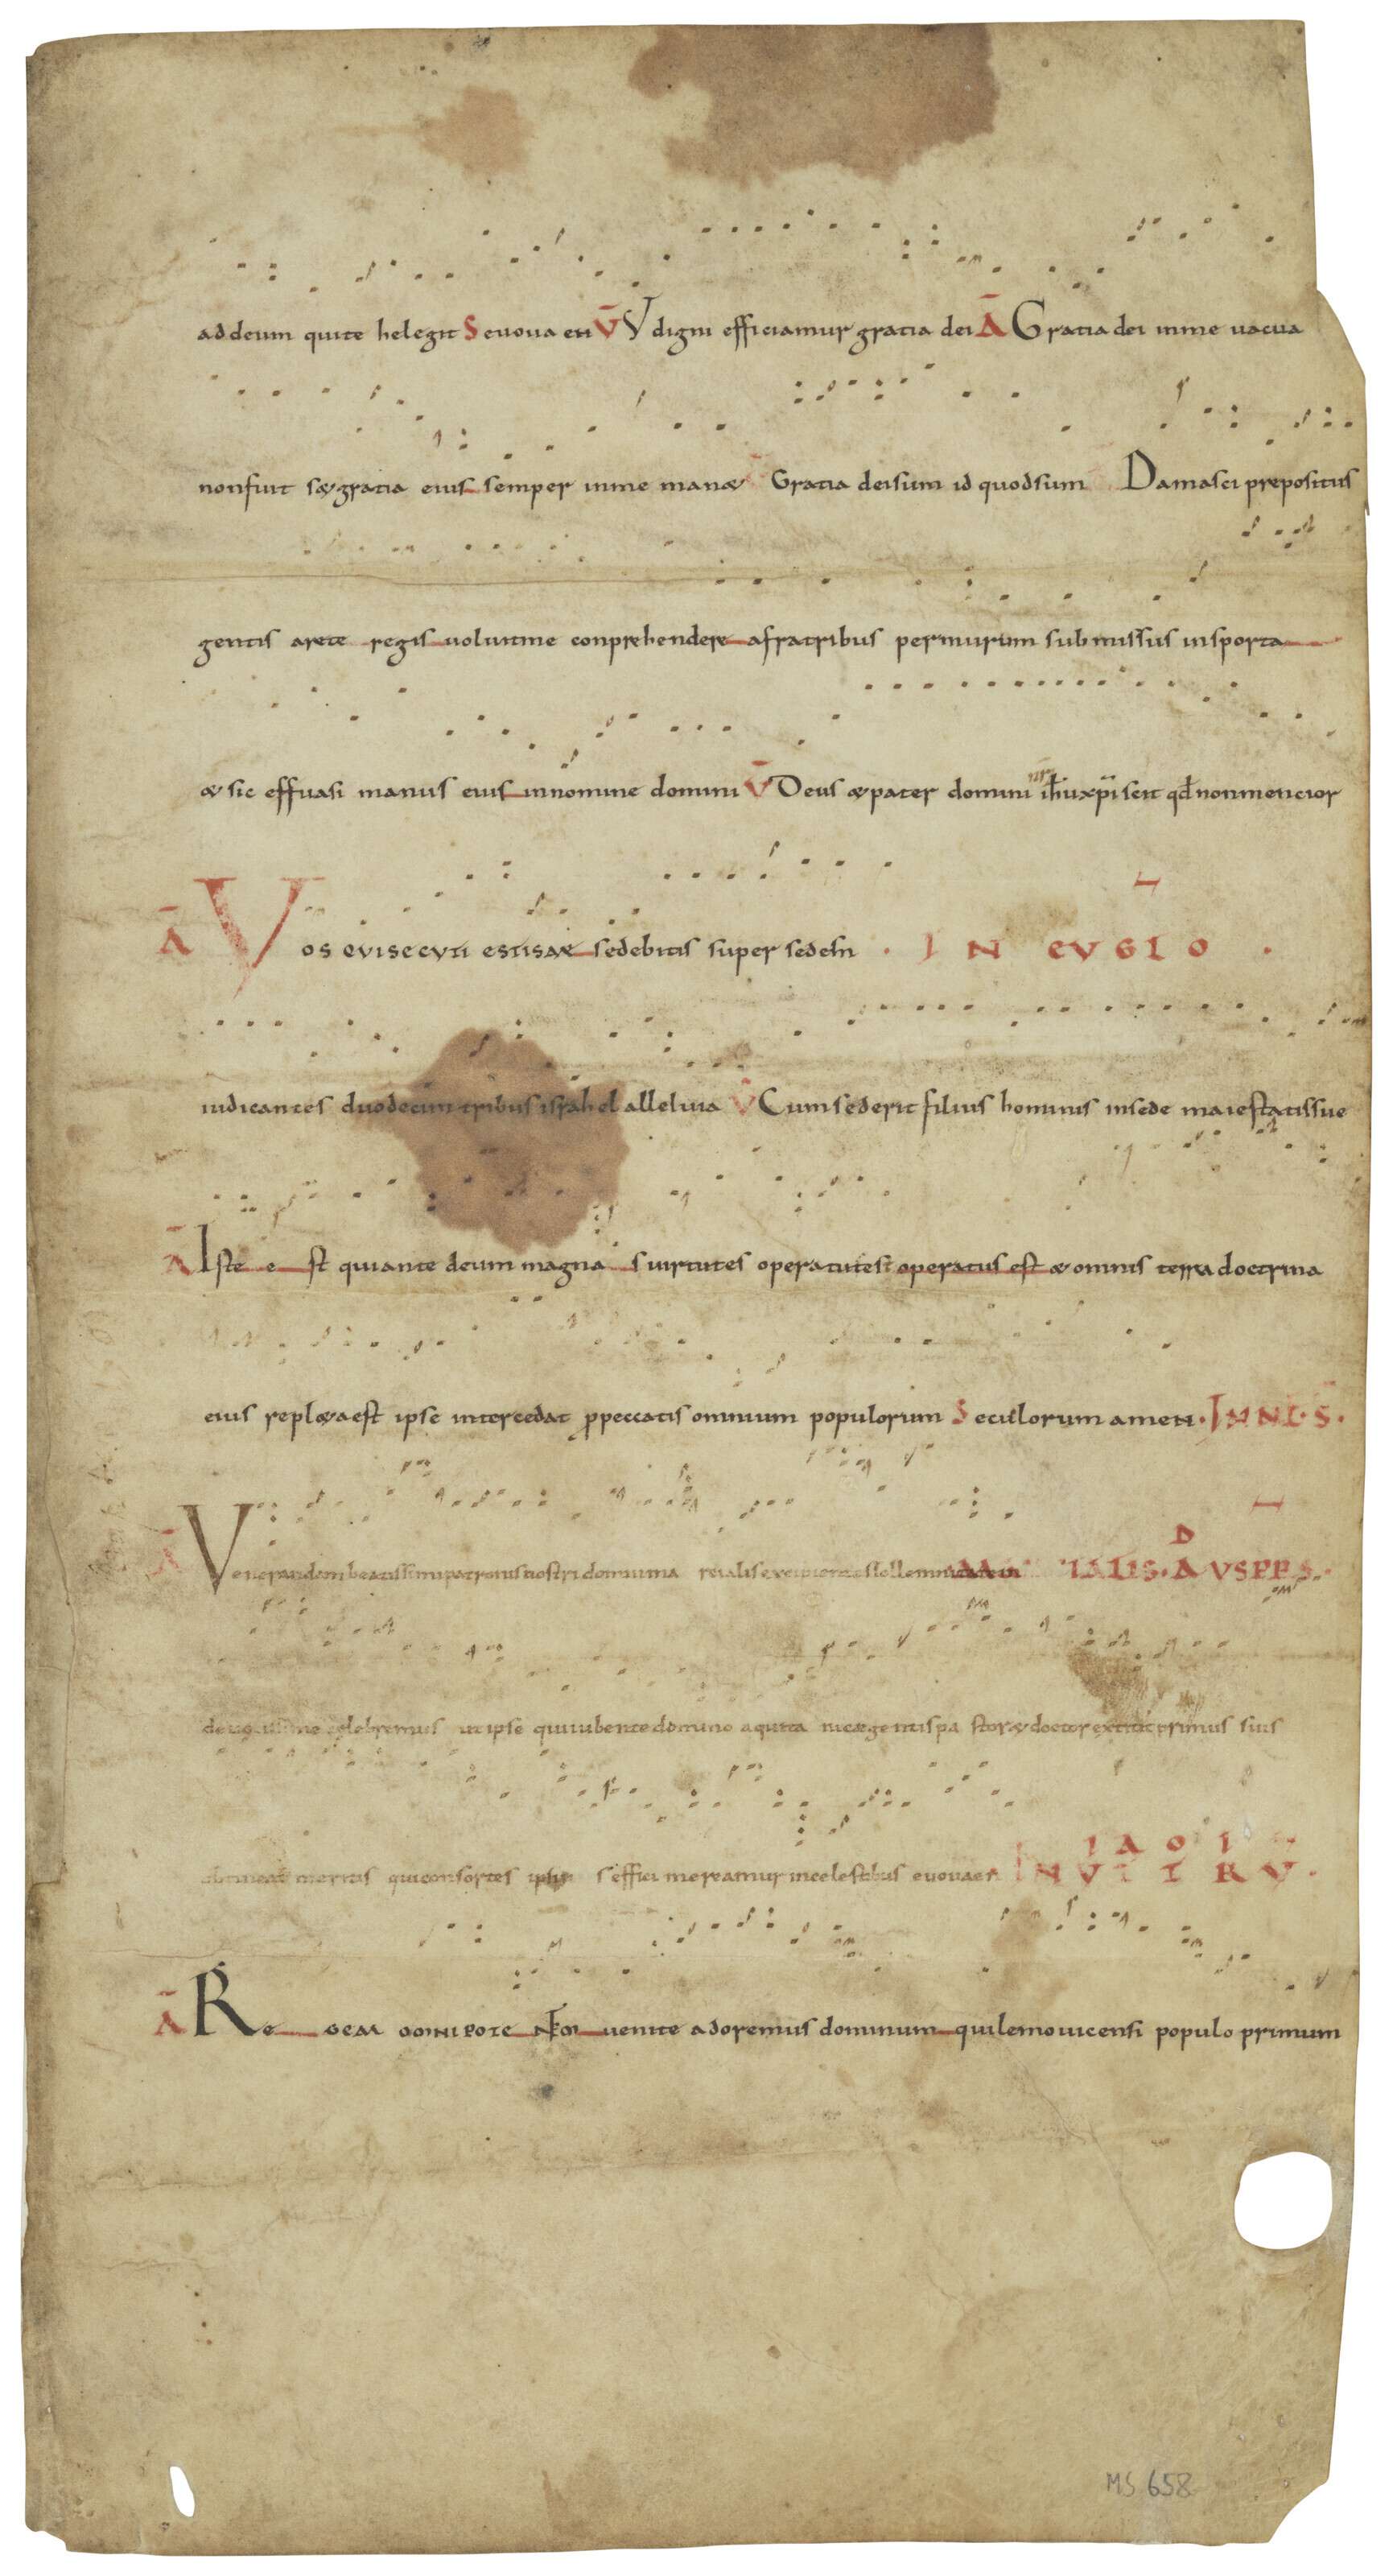 ad deum qui te helegit S euoua en V̄ Vt digni efficiamur gratia dei Ā Gratia dei in me uacua
non fuit s& gratia eius semper in me man& Gratia dei sum id quod sum Damasci prepositus
gentis arete regis uoluit me conprehendere a fratribus per murum submissus in sporta
& sic effuasi manus eius in nomine domini V̄ Deus & pater domini nr̄i ih̄u xp̄i scit qd̄ non mencior
Ā Vos qui secuti estis me sedebitis super sedem · IN EVGLO ·
iudicantes duodecim tribus israhel alleluia V̄ Cum sederit filius hominis in sede maiestatis sue
Ā Iste e st qui ante deum magna s uirtutes operatus est operatus est & omnis terra doctrina
eius repl&a est ipse intercedat p̄ peccatis omnium populorum S eculorum amen · IN NL · S ·
Ā Venerandam beatissimi patronis nostri domini ma rcialis excipientes sollemnitatem TIALIS · AD VSPRS ·
celebremus ut ipse qui iubente domino aquita nice gentis pa stor & doctor extitit primus suis
meritis qui consortes ipsius effici mereamur in celestibus euouaen INVITATORIV ·
Ā Re gem omnipote ntem uenite adoremus dominum qui lemouicensi populo primum
MS 658